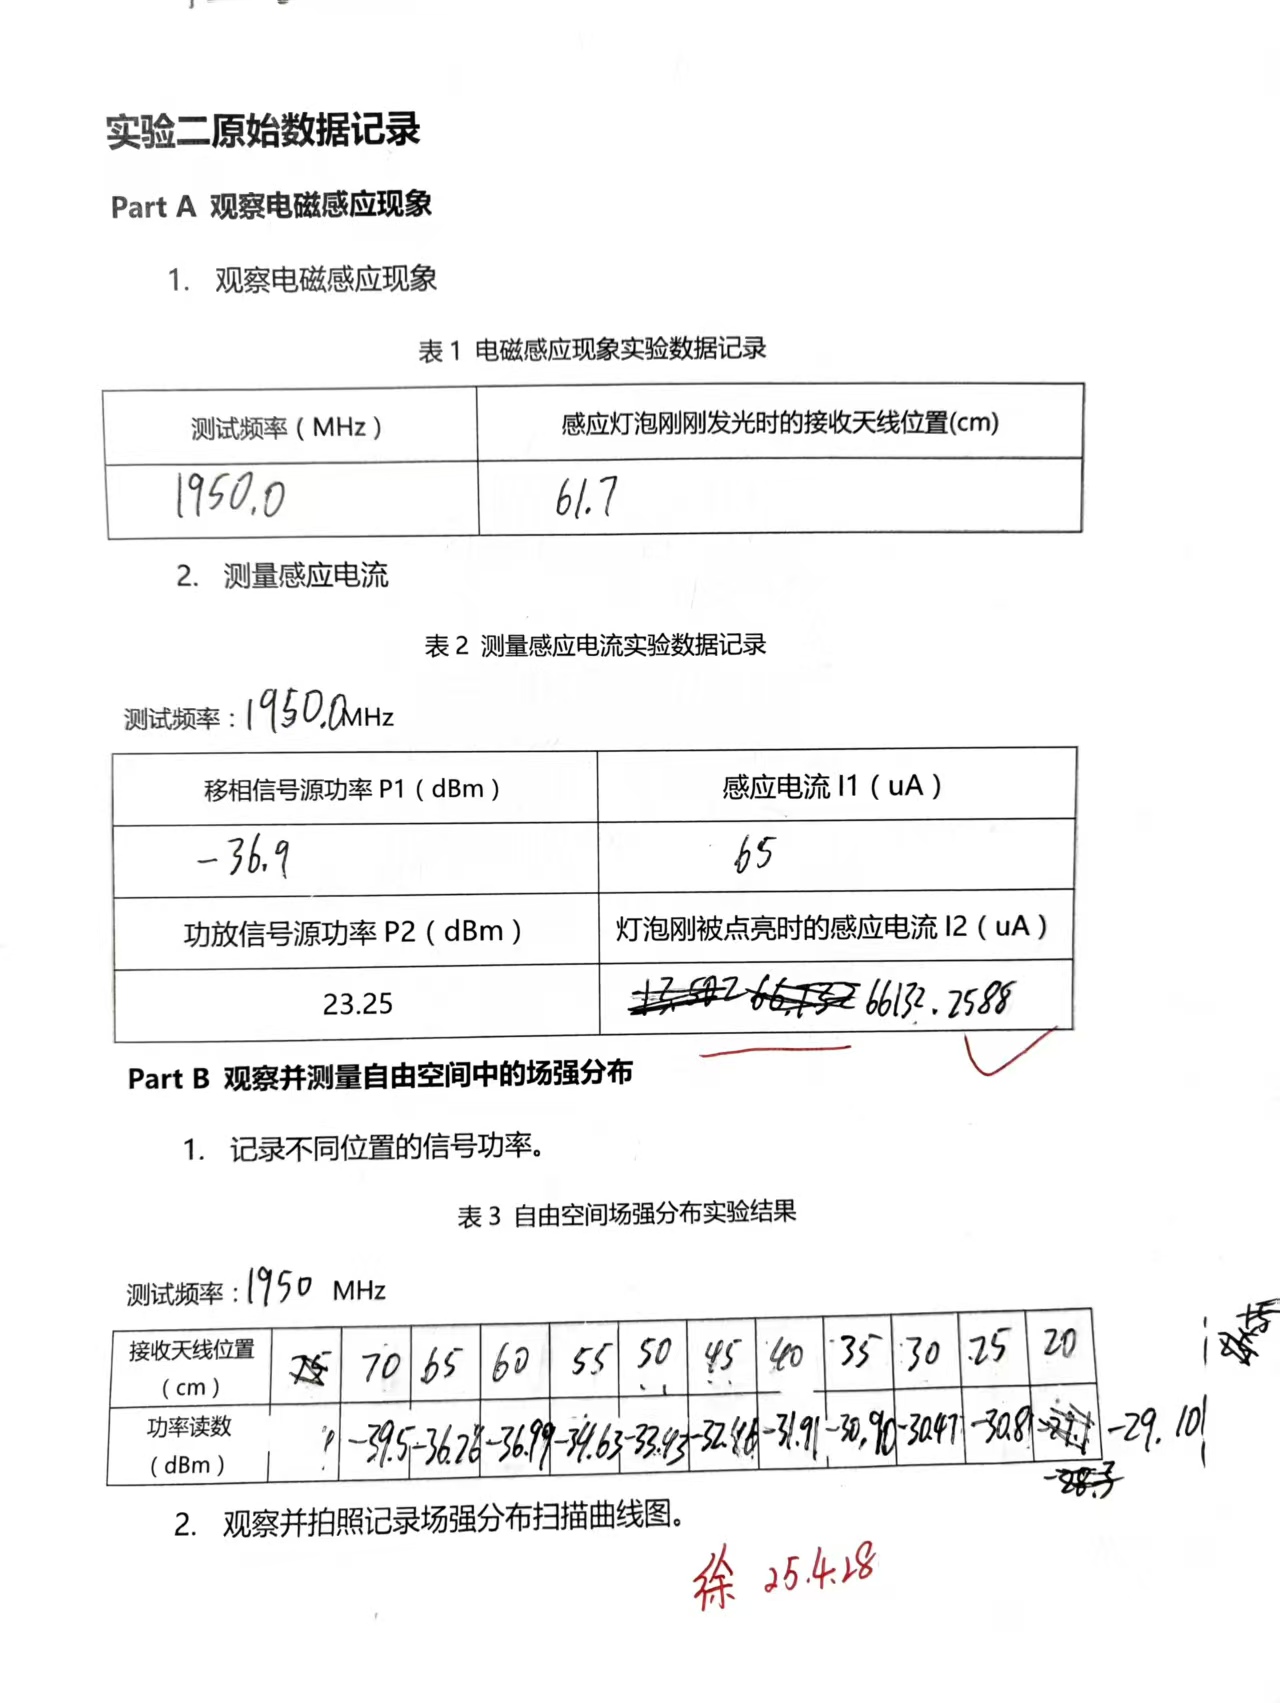 实验二原始数据记录
Part A 观察电磁感应现象
1. 观察电磁感应现象
表 1 电磁感应现象实验数据记录
测试频率（MHz） 感应灯泡刚刚发光时的接收天线位置(cm)
1950.0 61.7
2. 测量感应电流
表 2 测量感应电流实验数据记录
测试频率：1950.0MHz
移相信号源功率 P1（dBm） 感应电流 I1（uA）
-36.9 65
功放信号源功率 P2（dBm） 灯泡刚被点亮时的感应电流 I2（uA）
23.25 66132.2588
Part B 观察并测量自由空间中的场强分布
1. 记录不同位置的信号功率。
表 3 自由空间场强分布实验结果
测试频率：1950 MHz
接收天线位置（cm） 70 65 60 55 50 45 40 35 30 25 20
功率读数（dBm） -39.5 -36.26 -36.99 -34.63 -33.43 -31.91 -30.90 -30.47 -30.81 -29.10
2. 观察并拍照记录场强分布扫描曲线图。
徐 25.4.28